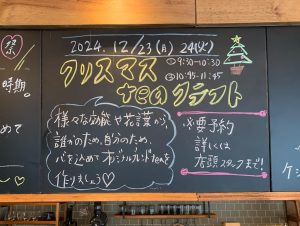 2024. 12/23(月) 24(火)
①9:30-10:30
②10:45-11:45
クリスマス
teaクラフト
様々な効能や花言葉から、
誰かのため、自分のため、
心を込めてオリジナルブレンドteaを
作りましょう♡
※要予約
詳しくは
店頭スタッフまで!
時期。
めて